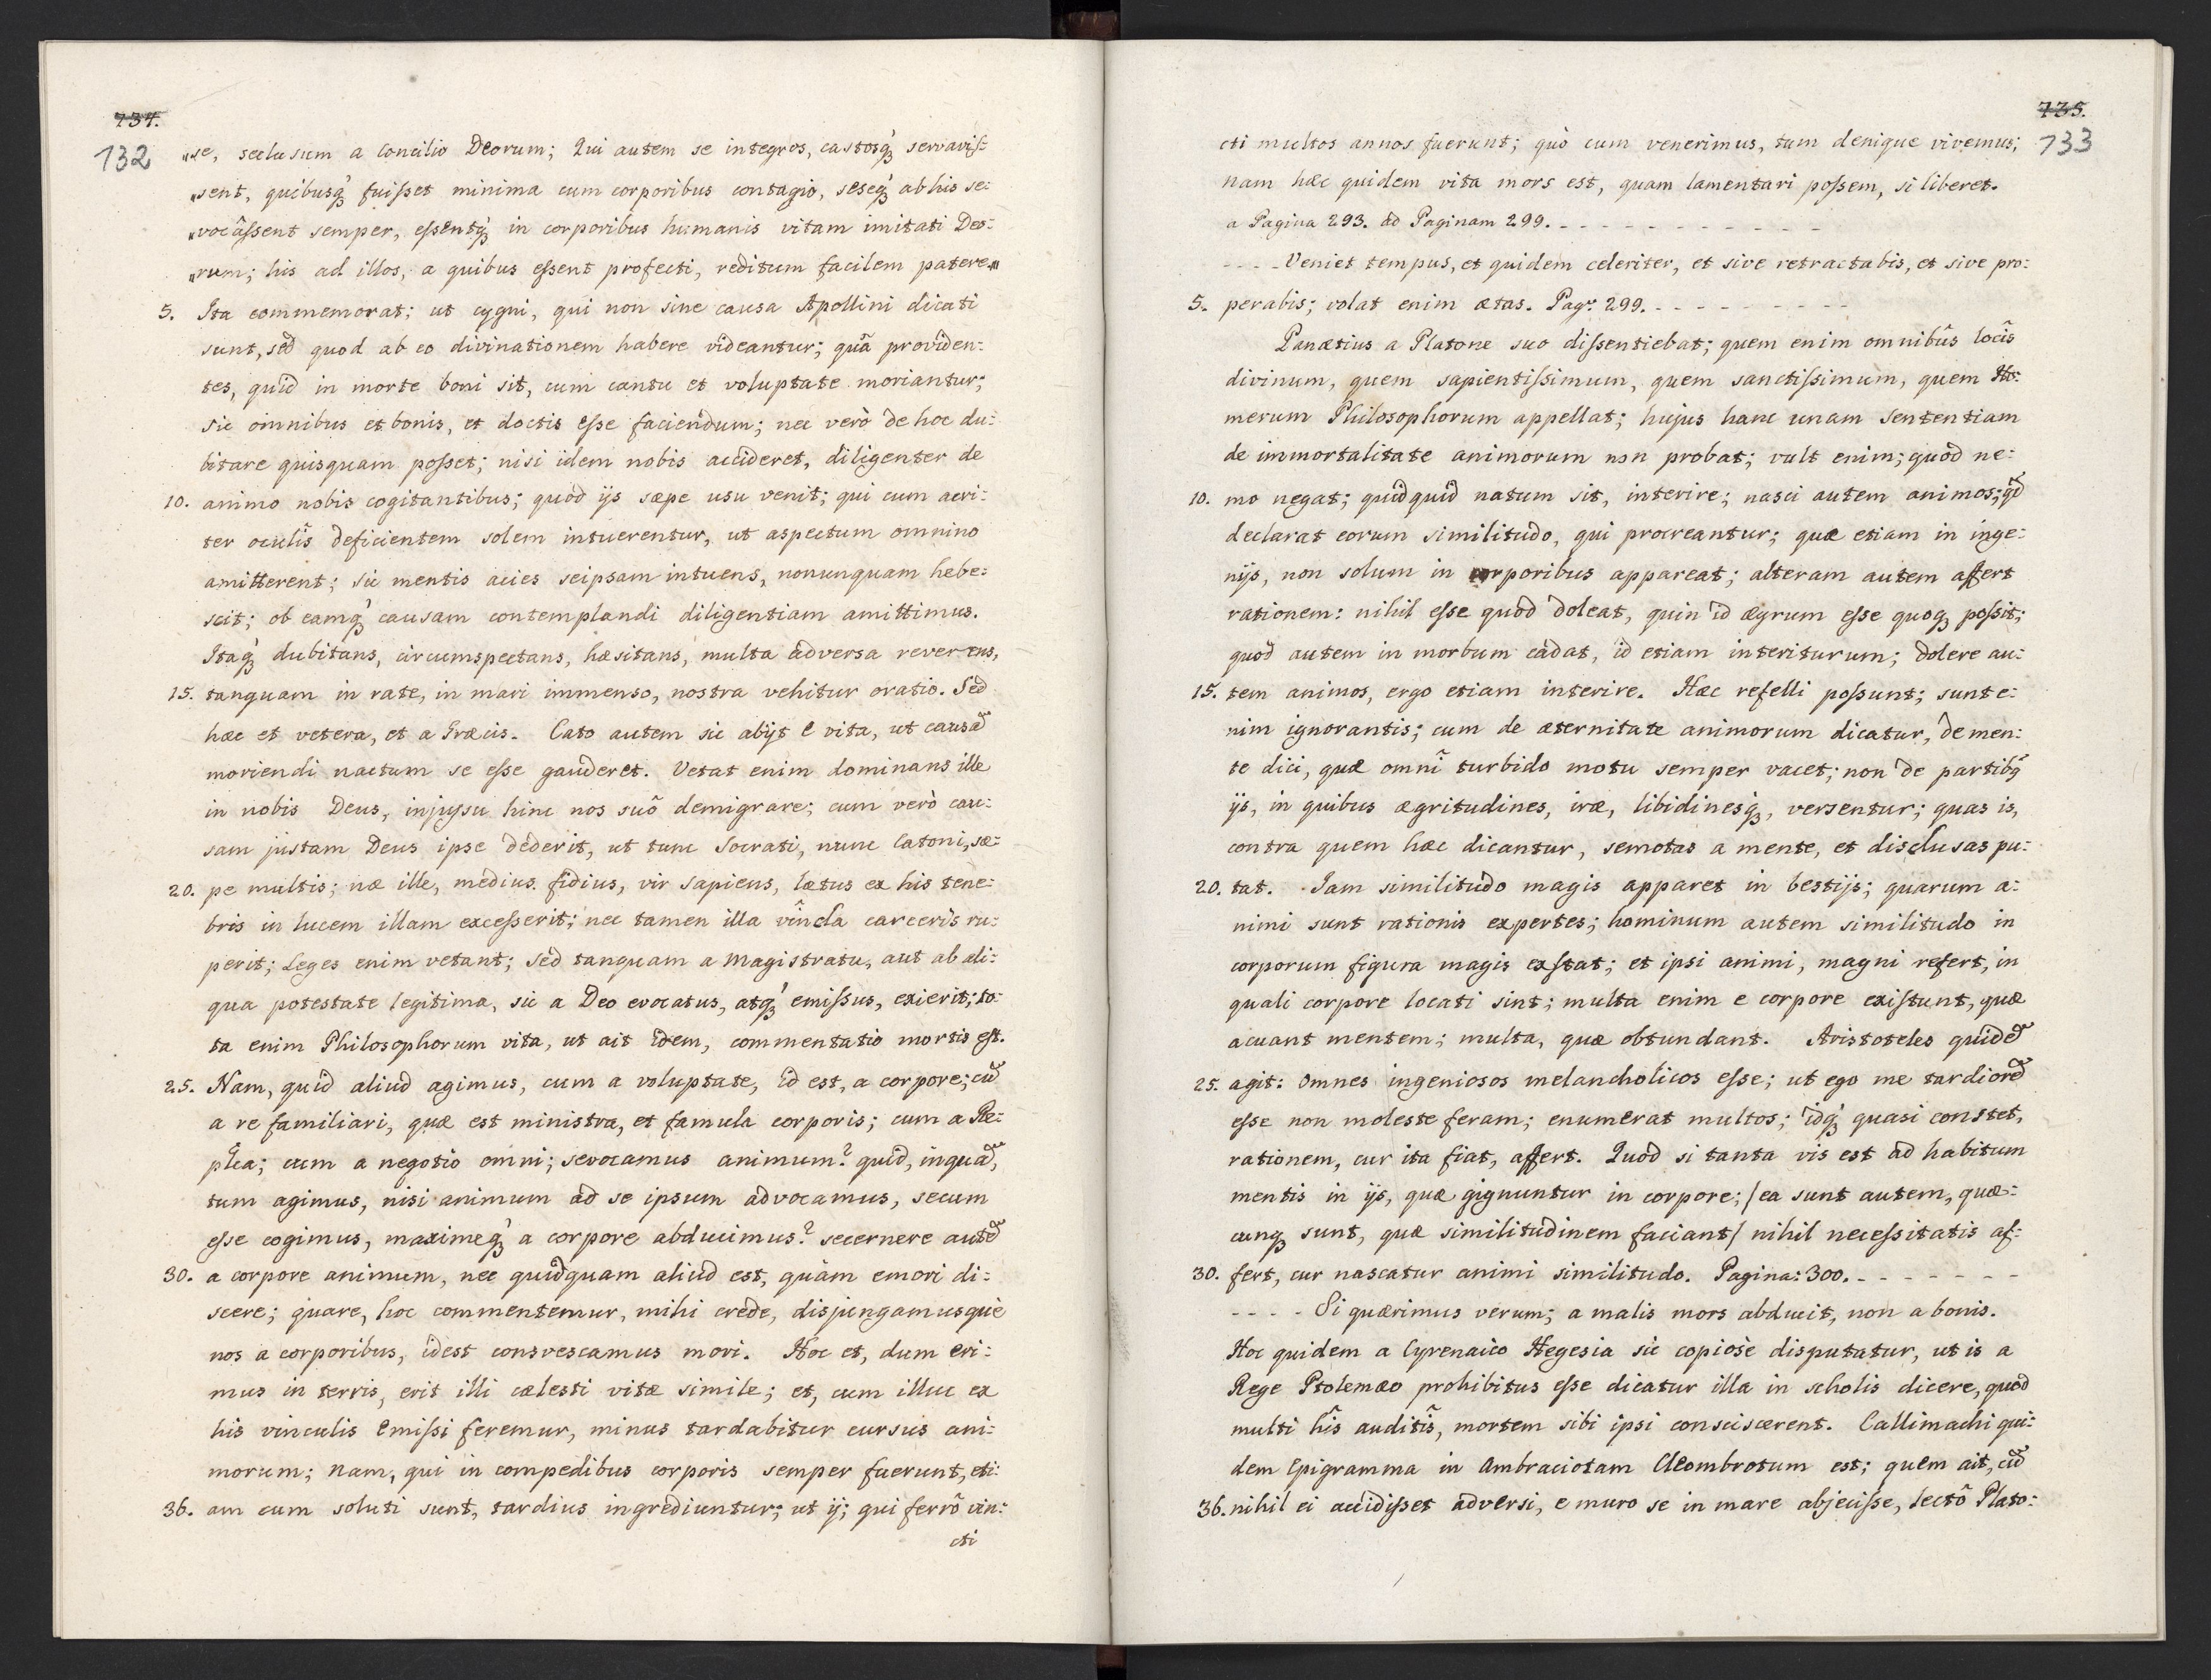 734.
132
„se, seclusum a Concilio Deorum; Qui autem se integros, castosq́ʒ servavis:
„sent, quibusq́ʒ fuiſset minima cum corporibus contagio, seseq́ʒ ab his se:
„vocâſsent semper, eſsentq́ʒ in corporibus humanis vitam imitati Deo:
„rum; his ad illos, a quibus eſsent profecti, reditum facilem patere„
5. Ita commemorat; ut cygni, qui non sine causa Apollini dicati
sunt, sed quod ab eo divinationem habere videantur; quâ providen:
tes, quid in morte boni sit, cum cantu et voluptate moriantur;
sic omnibus et bonis, et doctis eſse faciendum; nec verò de hoc du:
bitare quisquam poſset; nisi idem nobis accideret, diligenter de
10. animo nobis cogitantibus; quod ijs sæpe usu venit; qui cum acri:
ter oculîs deficientem solem intuerentur, ut aspectum omnino
amitterent; sic mentis acies seipsam intuens, nonunquam hebe:
scit; ob eamq́ʒ causam contemplandi diligentiam amittimus.
Itaq́ʒ dubitans, circumspectans, hæsitans, multa adversa revertens,
15. tanquam in rate, in mari immenso, nostra vehitur oratio. Sed
hæc et vetera, et a Græcis. Cato autem sic abijt e vita, ut causam̃
moriendi nactum se eſse gauderet. Vetat enim dominans ille
in nobis Deus, injuſsu hinc nos suô demigrare; cum verò cau:
sam justam Deus ipse dederit, ut tunc Socrati, nunc Catoni, sæ:
20. pe multis; næ ille, medius fidius, vir sapiens, lætus ex his tene:
bris in lucem illam exceſserit; nec tamen illa vîncla carceris ru:
perit; Leges enim vetant; Sed tanquam a Magistratu, aut ab ali:
qua potestate legitima, sic a Deo evocatus, atq́ʒ emiſsus, exierit; to:
ta enim Philosophorum vita, ut ait idem, commentatio mortis eſt.
25. Nam, quid aliud agimus, cum a voluptate, id est, a corpore; cum̃
a re familiari, quæ est ministra, et famula corporis; cum a Re:
plica; cum a negotio omni; sevocamus animum? quid, inquam̃,
tum agimus, nisi animum ad se ipsum advocamus, secum
eſse cogimus, maximeq́ʒ a corpore abducimus? secernere autem̃
30. a corpore animum, nec quidquam aliud est, quàm emori di:
scere; quare, hoc commentemur, mihi crede, disjungamusque
nos a corporibus, idest consvescamus mori. Hoc et, dum eri:
mus in terris, erit illi cælesti vitæ simile; et, cum illuc ex
his vinculis emiſsi feremur, minus tardabitur cursus ani:
morum; Nam, qui in compedibus corporis semper fuerunt, eti:
36. am cum soluti sunt, tardius ingrediuntur; ut ij; qui ferrô vin:
cti
735.
133
cti multos annos fuerunt; quò cum venerimus, tum denique vivemus;
nam hæc quidem vita mors est, quam lamentari poſsem, si liberet.
a Pagina 293. ad Paginam 299. - - - - - - - - - - -
- - - - Veniet tempus, et quidem celeriter, et sive retractabis, et sive pro:
5. perabis; volat enim ætas. Pagᵃ. 299. - - - - - - - -
Panætius a Platone suo diſsentiebat; quem enim omnibûs locîs
divinum, quem sapientiſsimum, quem sanctiſsimum, quem Ho:
merum Philosophorum appellat; hujus hanc unam Sententiam
de immortalitate animorum non probat; vult enim; quod ne:
10. mo negat; quidquid natum sit, interire; nasci autem animos; qd̃
declarat eorum similitudo, qui procreantur; quæ etiam in inge:
nijs, non solum in corporibus appareat; alteram autem affert
rationem: nihil eſse quod doleat, quin id ægrum eſse quoqʒ poſsit;
quod autem in morbum cadat, id etiam interiturum; dolere au:
15. tem animos, ergo etiam interire. Hæc refelli poſsunt; sunt e:
nim ignorantis; cum de æternitate animorum dicatur, de men:
te dici, quæ omnî turbido motu semper vacet; non de partibq̃
ijs, in quibus ægritudines, iræ, libidinesq́ʒ, versentur; quas is,
contra quem hæc dicantur, semotas a mente, et disclusas pu:
20. tat. Iam similitudo magis apparet in bestijs; quarum a:
nimi sunt rationis expertes; hominum autem similitudo in
corporum figura magis exſtat; et ipsi animi, magni refert, in
quali corpore locati sint; multa enim e corpore exiſtunt, quæ
acuant mentem; multa, quæ obtundant. Aristoteles quidem̃
25. agit: Omnes ingeniosos melancholicos eſse; ut ego me tardiorem̃
eſse non moleste feram; enumerat multos; idq́ʒ quasi constet,
rationem, cur ita fiat, affert. Quod si tanta vis est ad habitum
mentis in ijs, quæ gignuntur in corpore; /ea sunt autem, quæ:
cunqʒ sunt, quæ similitudinem faciant/ nihil neceſsitatis af:
30. fert, cur nascatur animi similitudo. Pagina: 300. - - - - - - -
- - - - Si quærimus verum; a malis mors abducit, non a bonis.
Hoc quidem a Cyrenaico Hegesia sic copiosè disputatur, ut is a
Rege Ptolemæo prohibitus eſse dicatur illa in scholis dicere, quod
multi hîs auditîs, mortem sibi ipsi consciscerent. Callimachi qui:
dem Epigramma in Ambraciotam Cleombrotum est; quem ait, cum̃
36. nihil ei accidiſset adversi, e muro se in mare abjeciſse, lectô Plato: